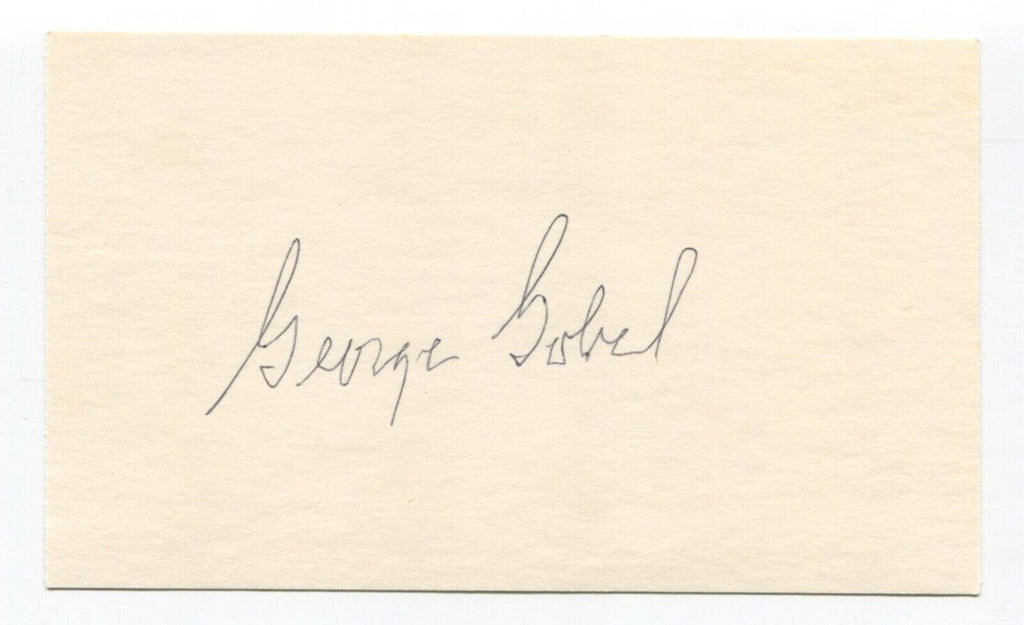 George Gobel